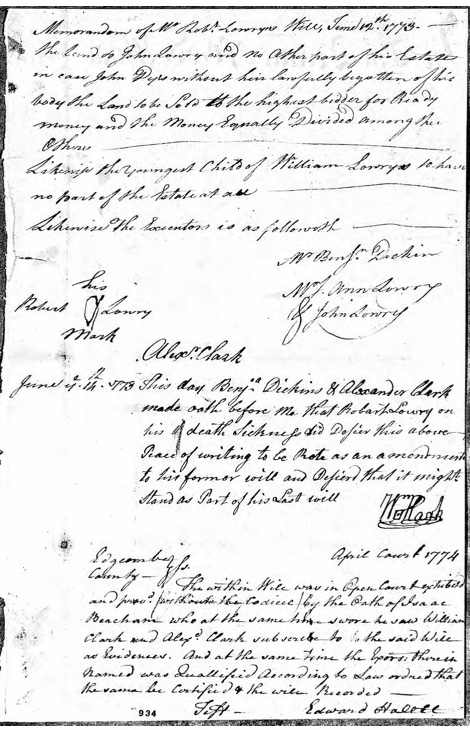 Memorandom of Mr Robt. Lowrys Will, June 12th. 1773
the Land to John Lowry and no Other part of his Estate
in case John Dys without heir lawfully begotten of his
body the Land to be Sold to the highest bidder for Ready
money and the Money Equally Divided among the
Others
Likewise the Youngest Child of William Lowrys to have
no part of the Estate at all
Likewise the Executors is as followeth
Mr Benjn Dickin
Mrs. Ann Lowry
& John Lowry
his
Robert Lowry
Mark
Alexr. Clark
June ye 14th 1773 This day Benjn Dickins & Alexander Clark
made oath before Me that Robart Lowry on
his death Sickness did Desier this above
Peace of writing to be Rote as an amendment
to his former will and Desierd that it might
Stand as Part of his Last will
Wm Clark
Edgcombe Ss.
County
April Court 1774
The within Will was in Open Court exhibited
and provd. (without the Codicel) by the Oath of Isaac
Beacham who at the same time swore he saw William
Clark and Alexr. Clark subscribe to the said Will
as Evidences. And at the same time the Exors. therein
Named was Quallified According to Law ordred that
the same be Certified & the will Recorded
Test
Edward Hall
934